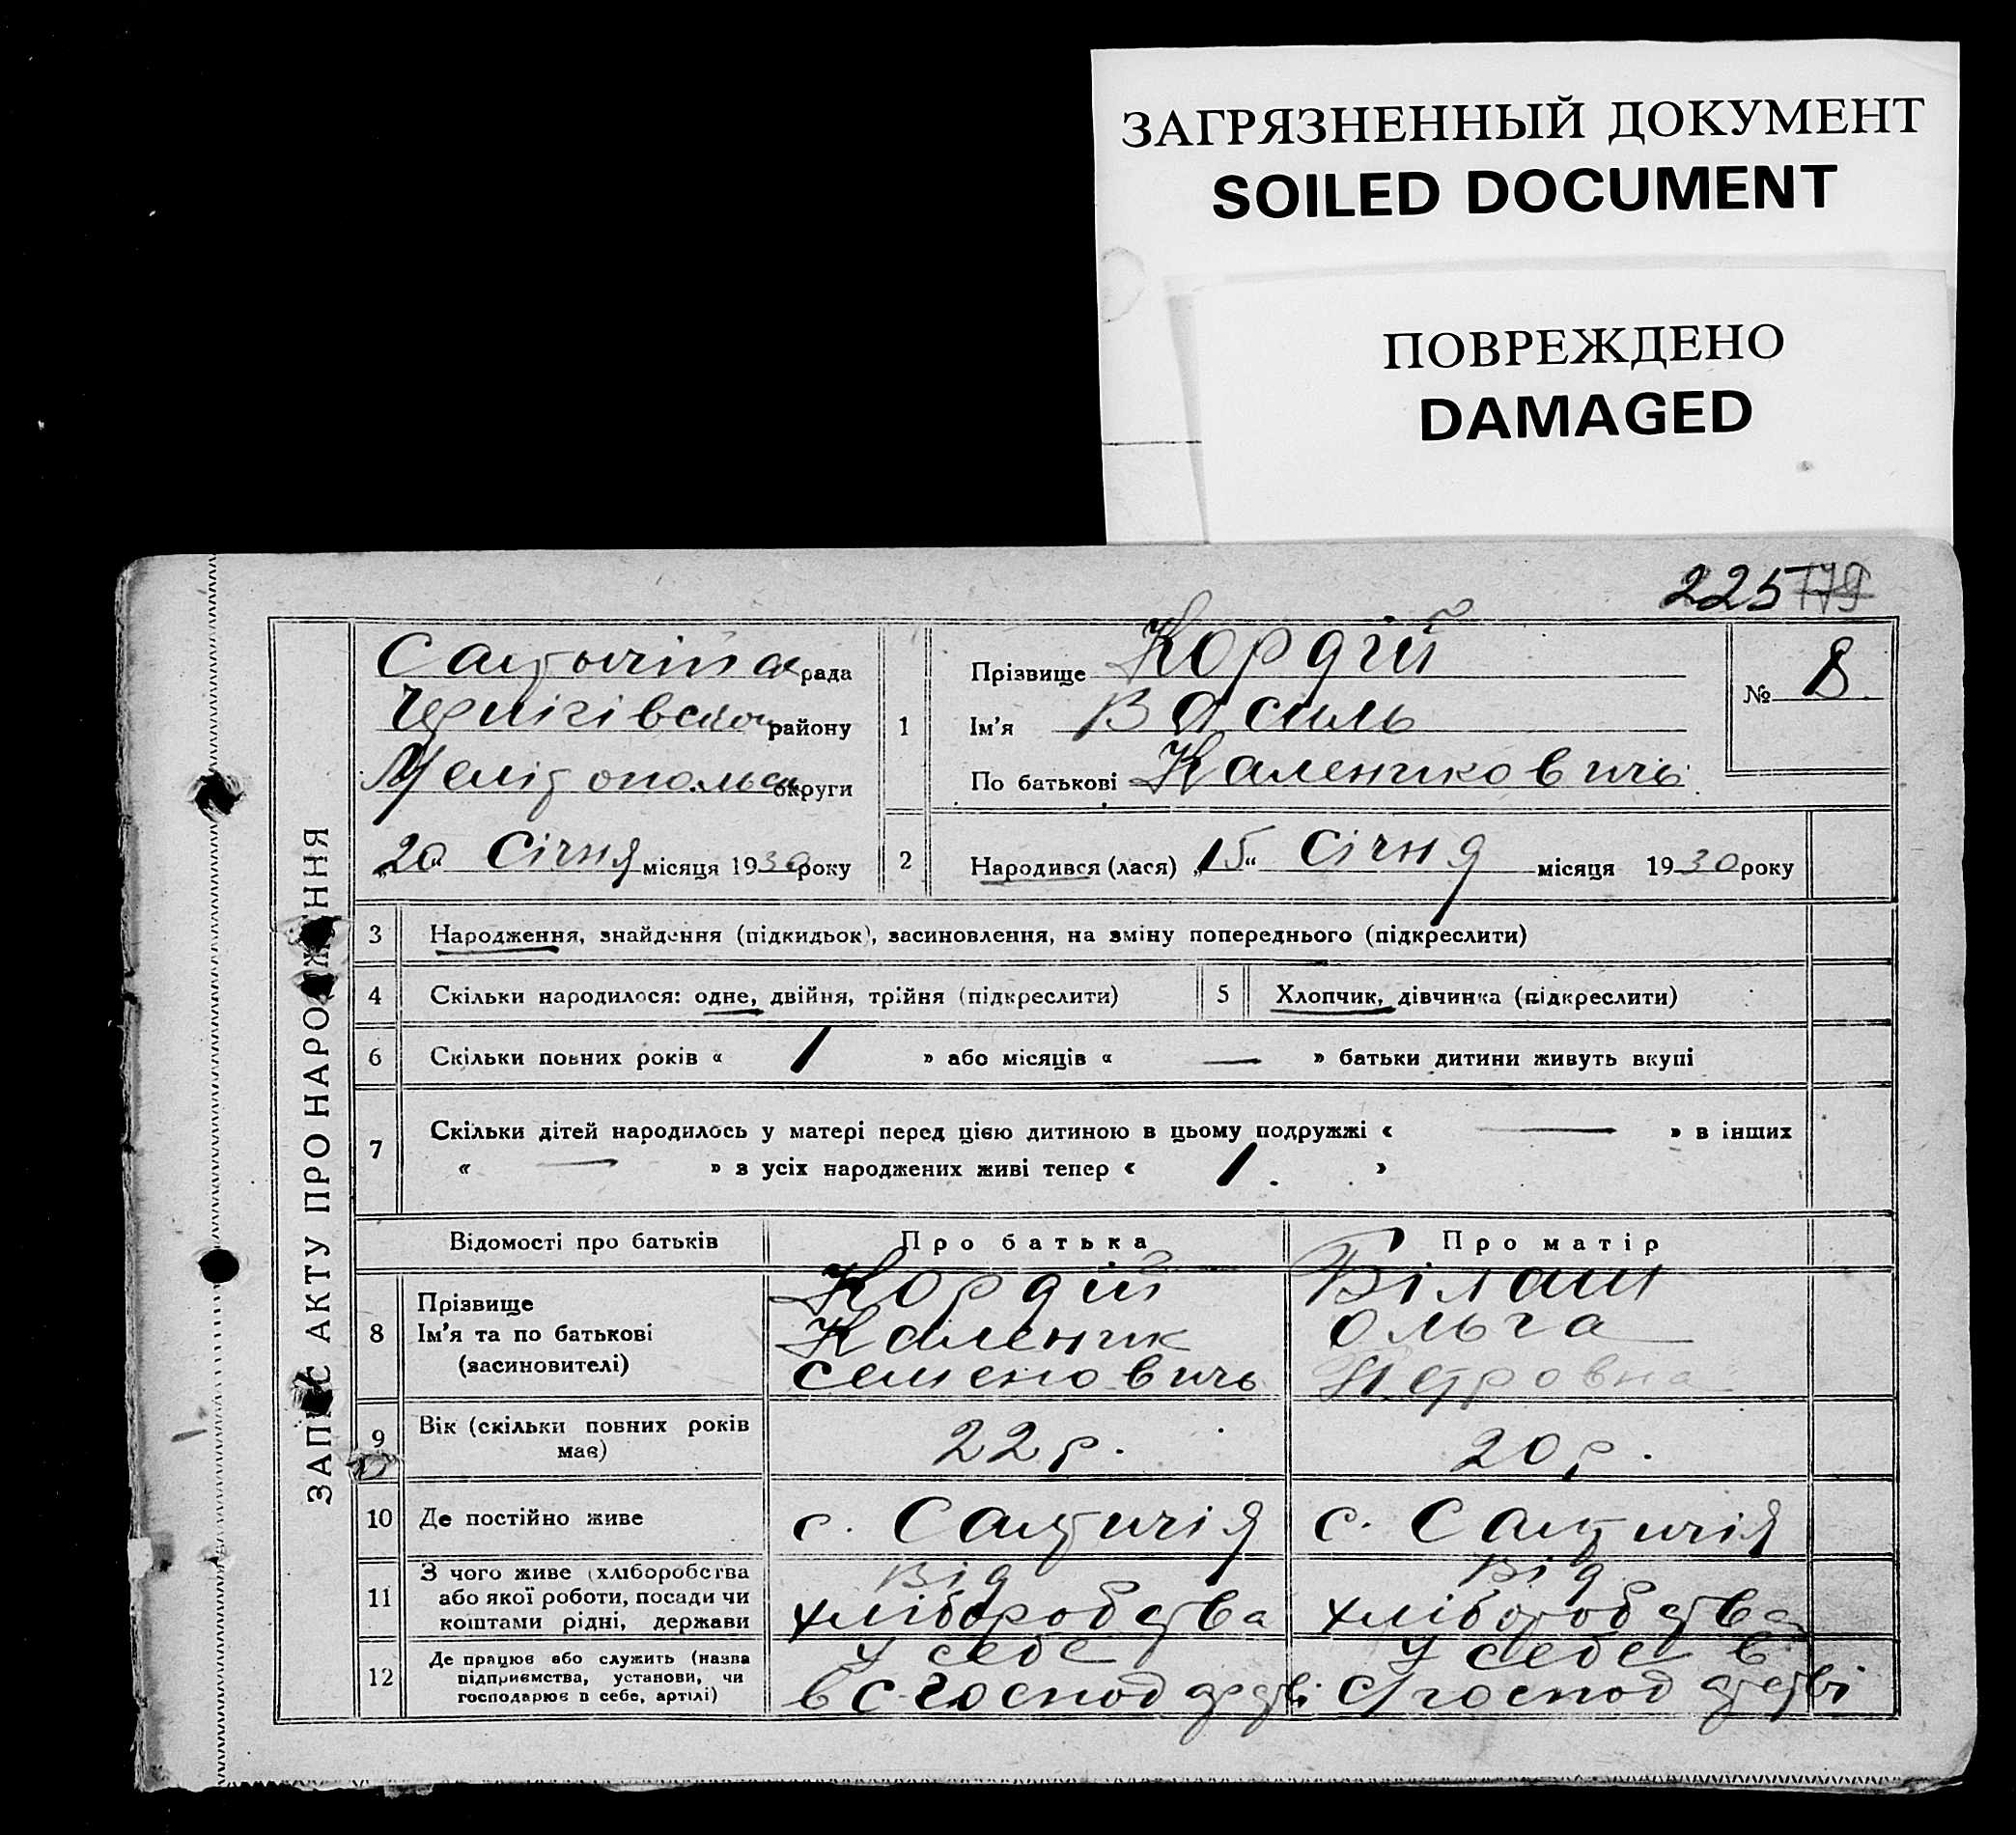 ЗАГРЯЗНЕННЫЙ ДОКУМЕНТ
SOILED DOCUMENT
ПОВРЕЖДЕНО
DAMAGED
225 179
ЗАПИС АКТУ ПРО НАРОДЖЕННЯ
рада
Чернігівськ району
Мелітопольськ округи
„20 Січня місяця 1930 року
1
Прізвище Кордій
Ім'я Василь
По батькові Каленикович
№ 8
2
Народився (лася) „15“ Січня місяця 1930 року
3 Народження, знайдення (підкидьок), засиновлення, на зміну попереднього (підкреслити)
4 Скільки народилося: одне, двійня, трійня (підкреслити) 5 Хлопчик, дівчинка (підкреслити)
6 Скільки повних років « 1 » або місяців « — » батьки дитини живуть вкупі
7 Скільки дітей народилось у матері перед цією дитиною в цьому подружжі « — » в інших
« — » з усіх народжених живі тепер « 1. »
Відомості про батьків Про батька Про матір
8 Прізвище Кордій Білаш
Ім'я та по батькові Каленик Ольга
(засиновителі) Семенович Петровна
9 Вік (скільки повних років має) 22 р. 20 р.
10 Де постійно живе с. Салтичія с. Салтичія
11 З чого живе (хліборобства Від Від
або якої роботи, посади чи хліборобства хліборобства
коштами рідні, держави
12 Де працює або служить (назва у себе у себе в
підприємства, установи, чи в с-господарстві с/господарстві
господарює в себе, артілі)